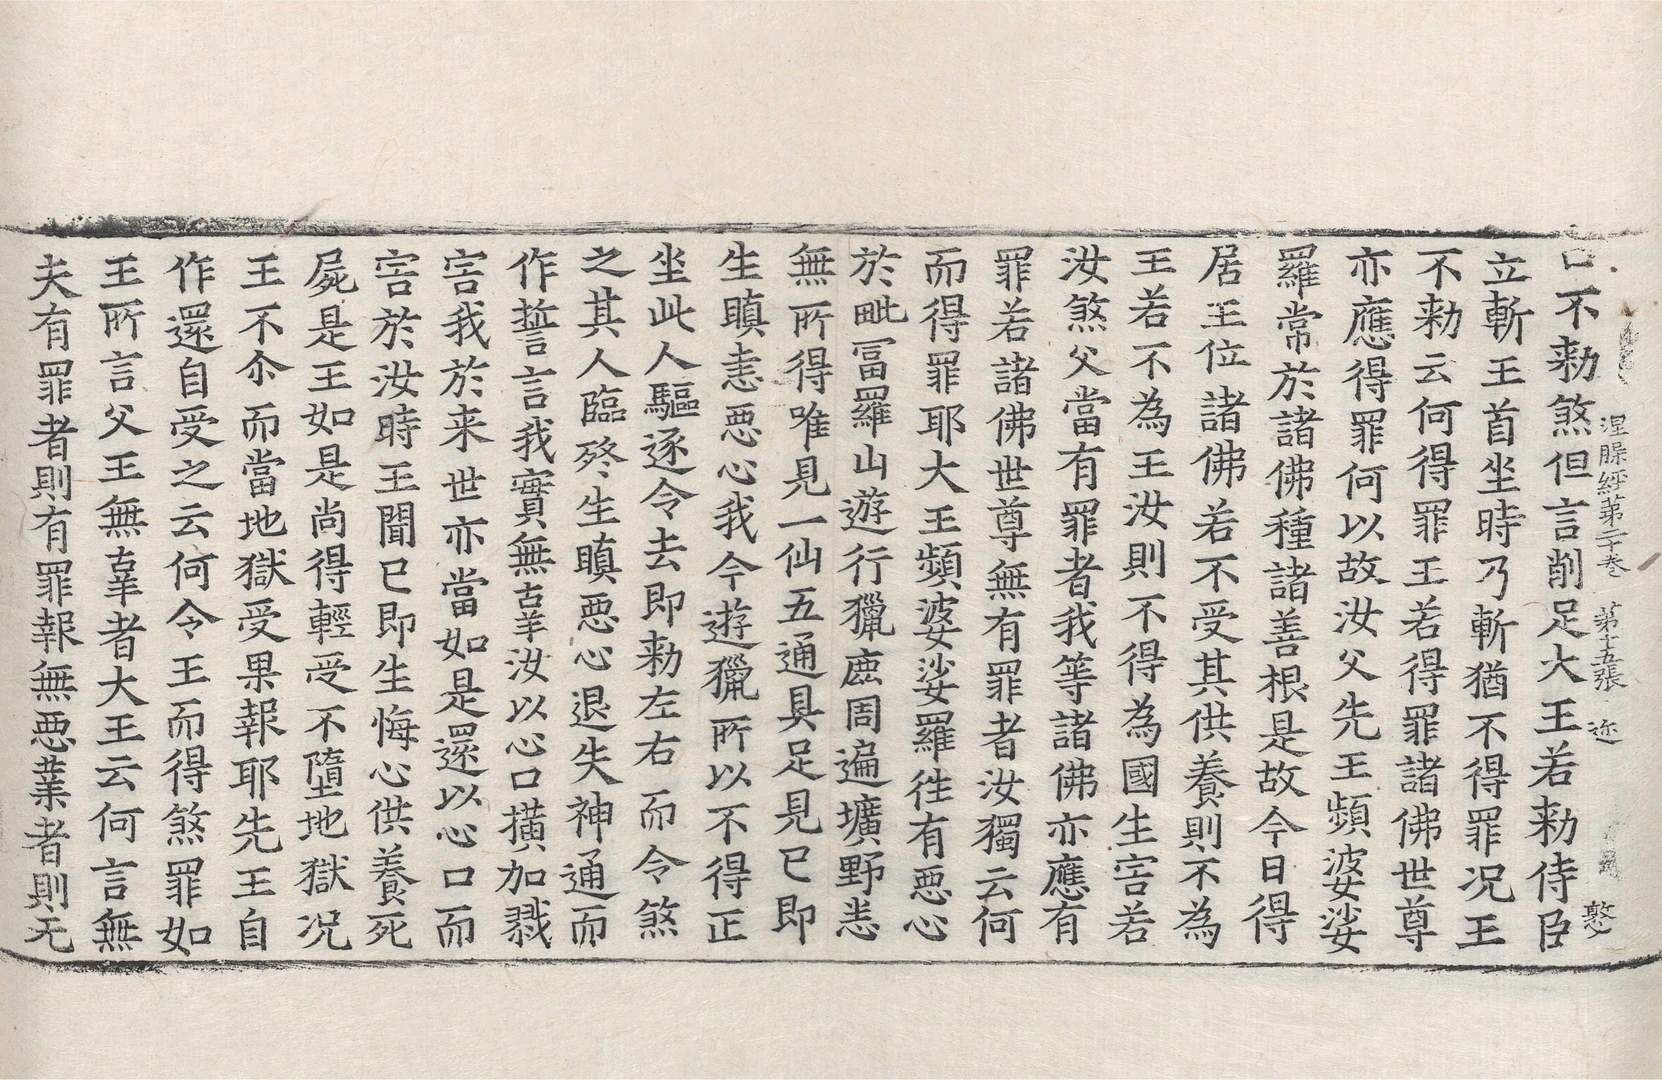 涅脲經第二十卷 第十五張 迩 憨
口不勑煞但言削足大王若勑侍臣
立斬王首坐時乃斬猶不得罪況王
不勑云何得罪王若得罪諸佛世尊
亦應得罪何以故汝父先王頻婆娑
羅常於諸佛種諸善根是故今日得
居王位諸佛若不受其供養則不為
王若不為王汝則不得為國生害若
汝煞父當有罪者我等諸佛亦應有
罪若諸佛世尊無有罪者汝獨云何
而得罪耶大王頻婆娑羅往有惡心
於毗冨羅山遊行獵鹿周遍壙野悉
無所得唯見一仙五通具足見已即
生瞋恚惡心我今遊獵所以不得正
坐此人驅逐令去即勑左右而令煞
之其人臨終生瞋惡心退失神通而
作誓言我實無辜汝以心口橫加戮
害我於来世亦當如是還以心口而
害於汝時王聞已即生悔心供養死
屍是王如是尚得輕受不墮地獄況
王不尒而當地獄受果報耶先王自
作還自受之云何令王而得煞罪如
王所言父王無辜者大王云何言無
夫有罪者則有罪報無惡業者則无